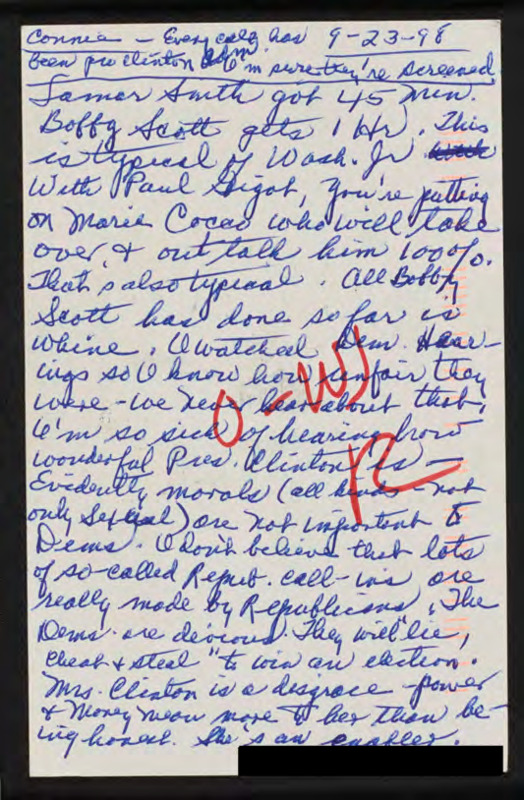 Connie – Every call has 9-23-98
been pro Clinton Adm. I'm sure they're screened
Lamar Smith got 45 min.
Bobby Scott gets 1 Hr. This
is typical of Wash. Jr
With Paul Gigot, you're putting
on Marie Cocao who will take
over, & out talk him 100%.
That's also typical. All Bobby
Scott has done so far is
whine. I watched Dem. Hear-
ings so I know how unfair they
were - we never hear about that.
I'm so sick of hearing how
wonderful Pres. Clinton is -
Evidently morals (all kinds - not
only Sexual) are not important to
Dems. I don't believe that lots
of so-called Repub. call-ins are
really made by Republicans. The
Dems. are devious. They will "lie,
cheat & steal" to win an election.
Mrs. Clinton is a disgrace - power
& money mean more to her than be-
ing honest. She's an enabler.
O-WJ
R